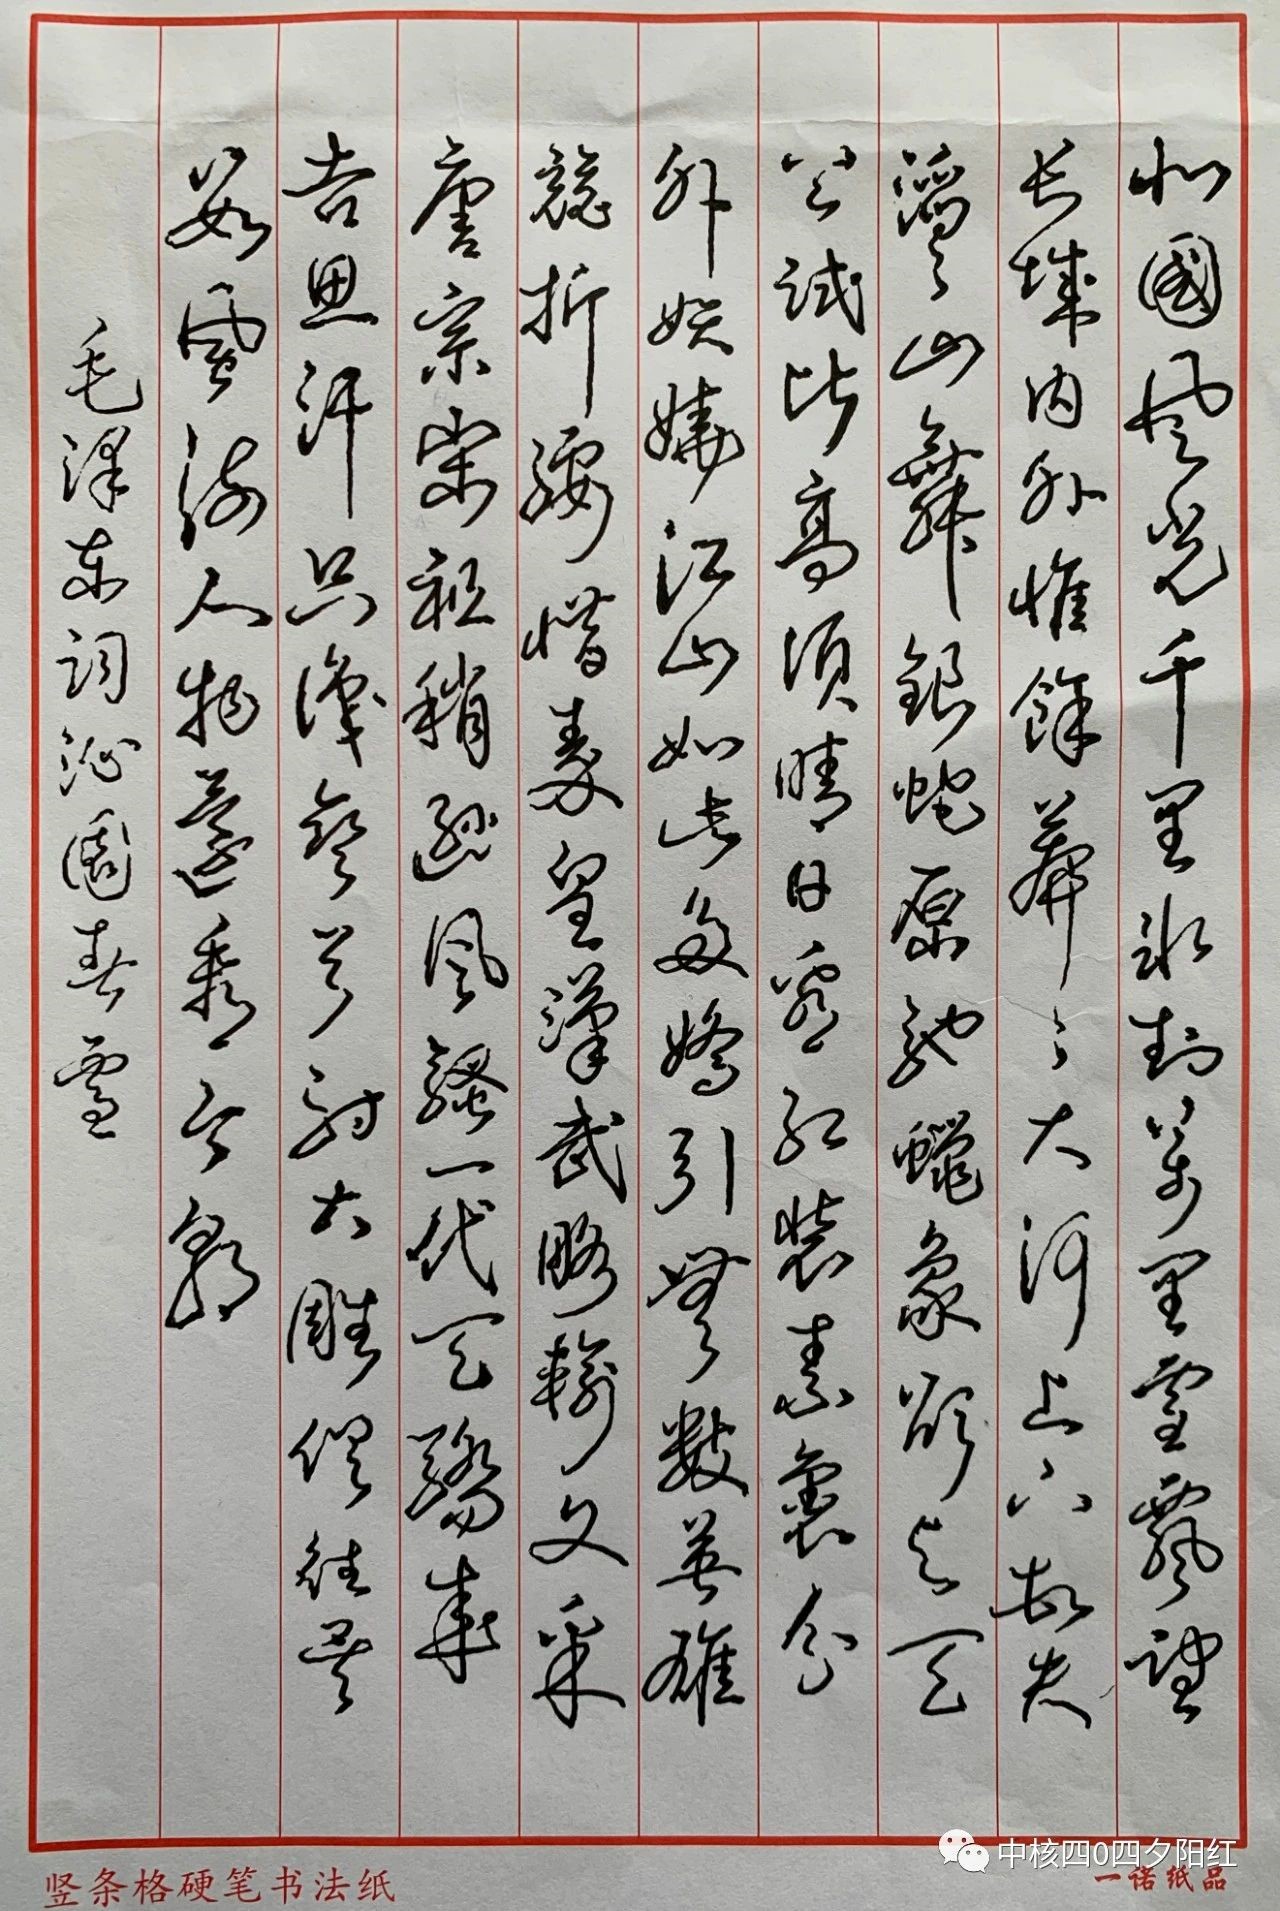 北國风光千里冰封萬里雪飄望
长城内外惟餘莽々大河上下頓失
滔々山舞銀蛇原馳蠟象欲与天
公試比高須晴日看红装素裹分
外妖嬈江山如此多嬌引無數英雄
競折腰惜秦皇漢武略輸文采
唐宗宋祖稍遜风騷一代天驕成
吉思汗只識彎弓射大雕俱往矣
數風流人物還看今朝
毛澤东詞沁園春雪
竖条格硬笔书法纸
一诺纸品
中核四0四夕阳红